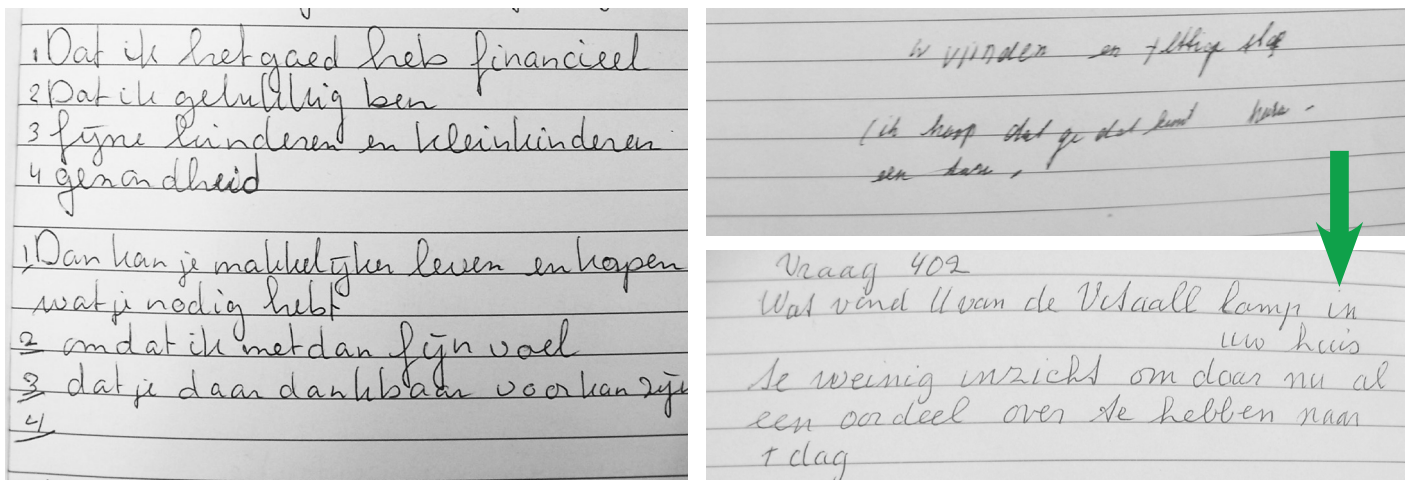 1 Dat ik het goed heb financieel
2 Dat ik gelukkig ben
3 fijne kinderen en kleinkinderen
4 gezondheid
1, Dan kan je makkelijker leven en kopen
wat je nodig hebt
2 omdat ik me dan fijn voel
3 dat je daar dankbaar voor kan zijn
4
vrinden en
(ik hoop dat ge dat kunt
een
Vraag 402
Wat vind U van de lamp in
uw huis
te weinig inzicht om daar nu al
een oordeel over te hebben naar
1 dag